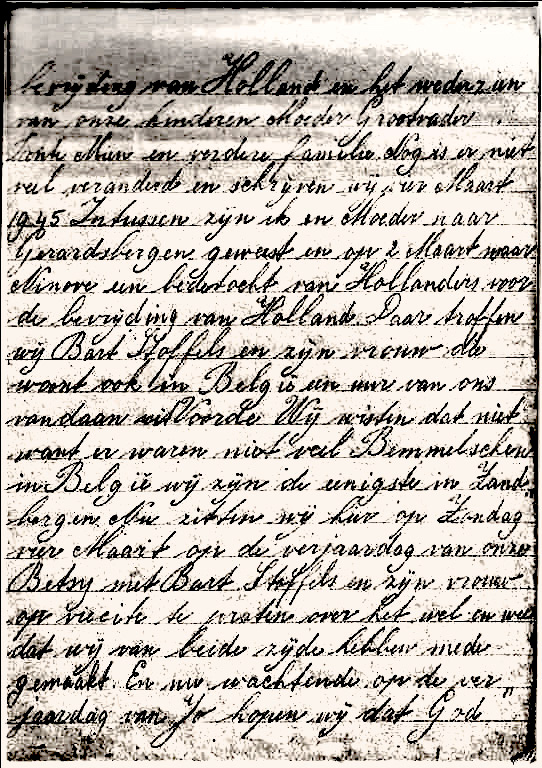 bevrijding van Holland en het wederzien
van onze kinderen Moeder Grootvader
tante Mien en verdere familie Nog is er niet
veel veranderd en schrijven wij vier Maart
1945 Intussen zijn ik en Moeder naar
Gerardsbergen geweest en op 2 Maart naar
Ninove een bedetocht van Hollanders voor
de bevrijding van Holland. Daar troffen
wij Bart Stoffels en zijn vrouw die
woont ook in België een uur van ons
vandaan uit Voorde Wij wisten dat niet
want er waren niet veel Bemmelschen
in België wij zijn de eenigste in Zand
bergen Nu zitten wij hier op Zondag
vier Maart op de verjaardag van onze
Betsy met Bart Stoffels en zijn vrouw
op visite te praten over het wel en wee
dat wij van beide zijde hebben mede
gemaakt. En nu wachtende op de ver
jaardag van Jo hopen wij dat God